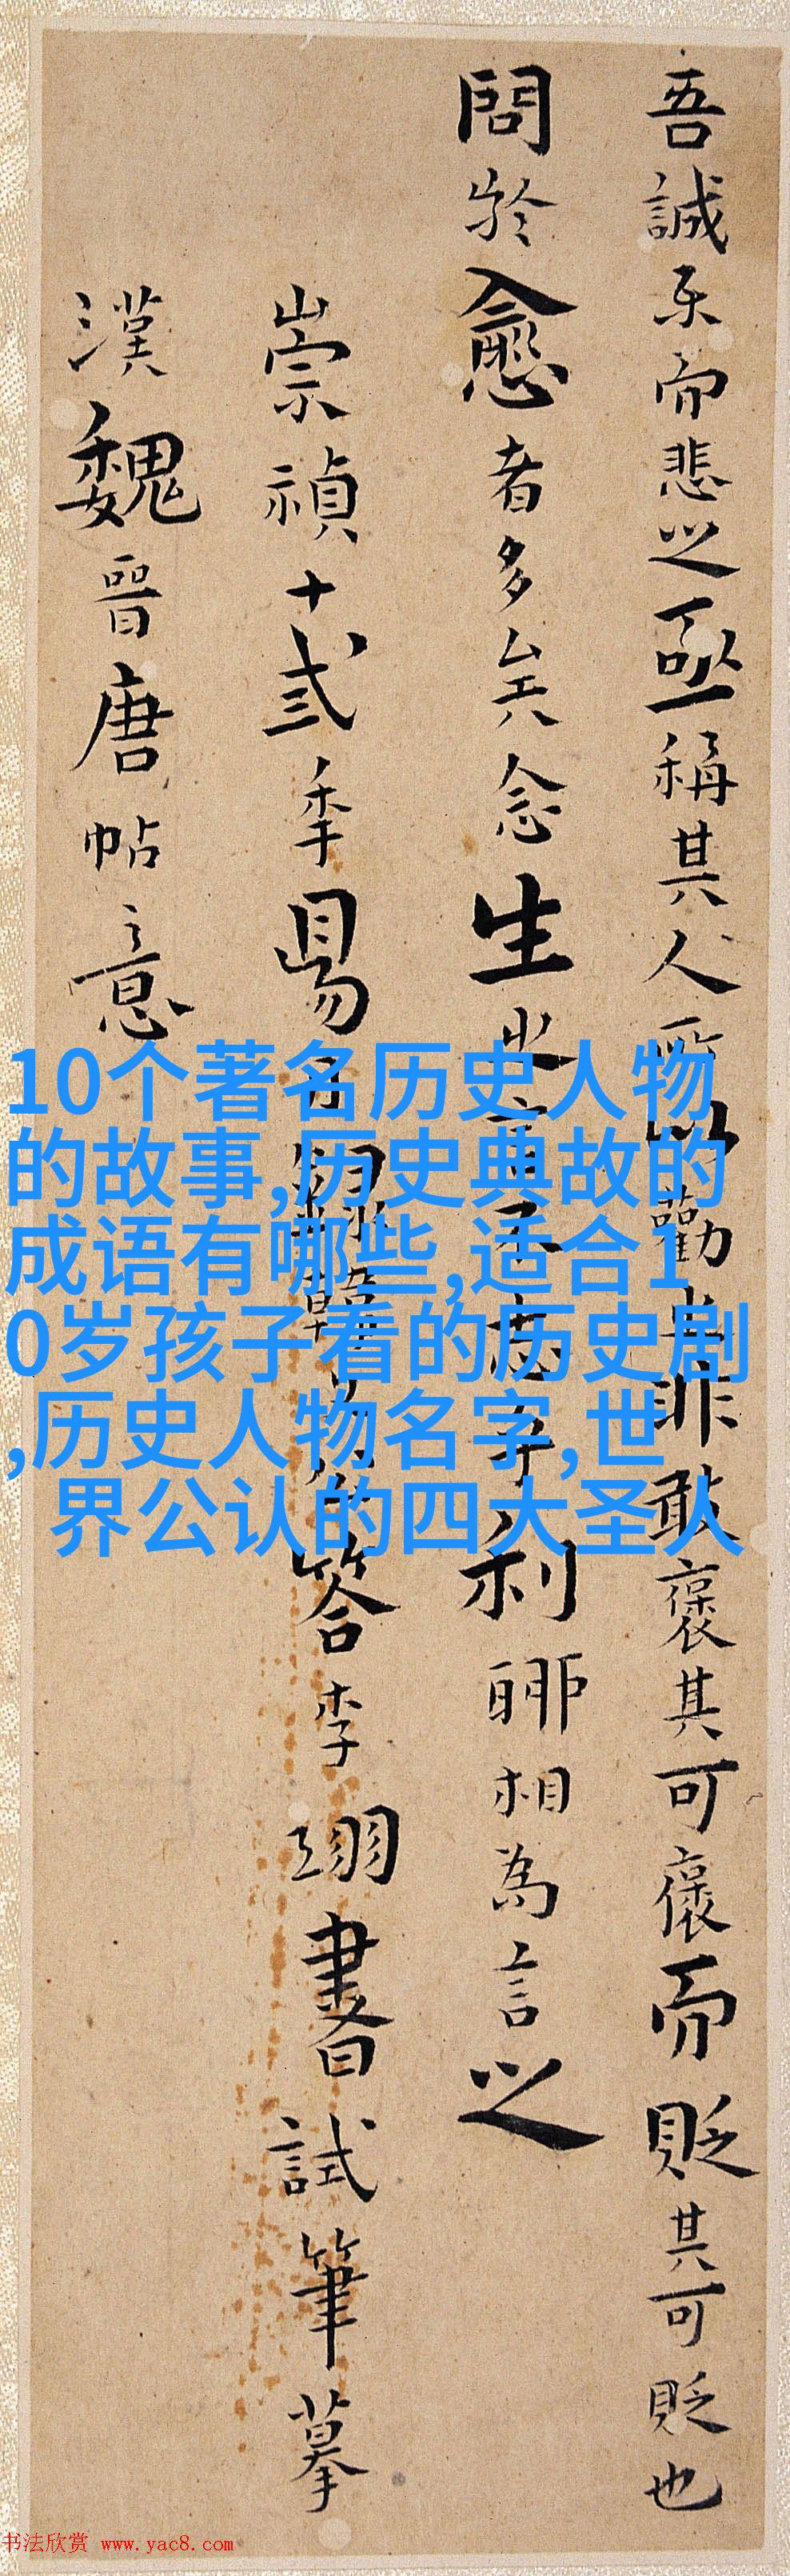 吾誠樂而悲之亟稱其人所以勸吾非敢褒其可褒而貶其可貶也
問於愈者多矣念生之言不志乎利聊相為言之
崇禎十弍季昜月錄韓答李翊書試筆摹
漢魏晉唐帖意
10个著名历史人物
的故事,历史典故的
成语有哪些,适合1
0岁孩子看的历史剧
,历史人物名字,世
界公认的四大圣人
书法欣赏 www.yac8.com